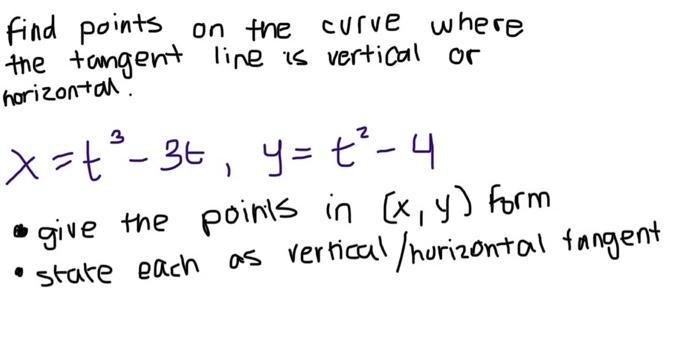 find points on the curve where
the tangent line is vertical or
horizontal.
x = t³ - 3t, y = t² - 4
• give the points in (x, y) form
• state each as vertical/horizontal tangent